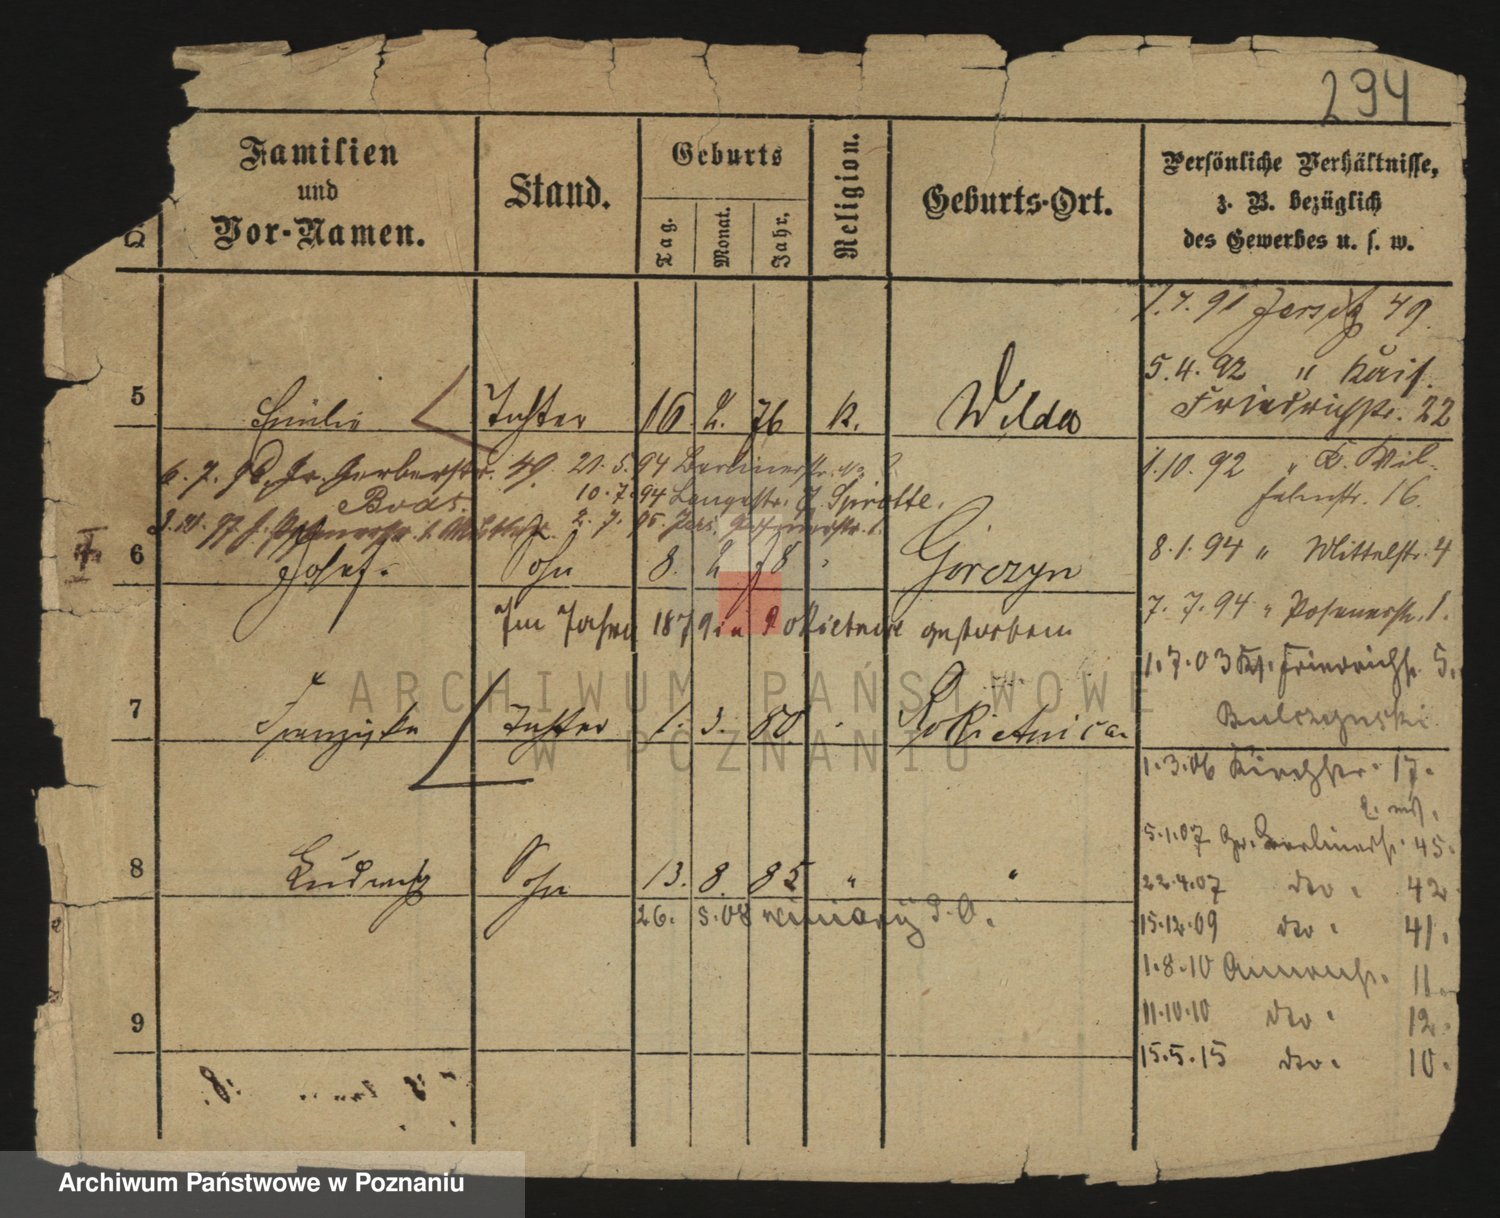 294
Familien
und
Vor-Namen.
Stand.
Geburts
Tag.
Monat.
Jahr.
Religion.
Geburts-Ort.
Persönliche Verhältnisse,
z. B. bezüglich
des Gewerbes u. s. w.
1.7.91 Jersitz 49.
5.4.92 " Kais.
Friedrichstr. 22
5 Emilie Tochter 16 2. 76 K. Wilda
6. 7. Gr. Gerberstr. 49. 21.5.94 Berlinerstr.
10.7.94 Langestr. 7
1.10.92 " K. Wil-
helmstr. 16.
2. 7. 95. Jers. Posenerstr. 1.
8.1.94 " Mittelstr. 4
6 Josef. Sohn 8. 2 78 Gorczyn
Im Jahre 1879 in Rokietnice gestorben
7.7.94 " Posenerstr. 1.
1.7.03 Ks. Friedrichstr. 5.
7 Franziska Tochter 1. 3. 80. Rokietnica
1.3.06 Kirchstr. 17.
5.1.07 Gr. Berlinerstr. 45.
8 Ludwig Sohn 13. 8. 85 " "
26. 5.08 Winiary
22.4.07 dto. 42
15.12.09 dto. 41.
1.8.10 11
9
11.10.10 dto. 12.
15.5.15 dto. 10.
ARCHIWUM PAŃSTWOWE
W POZNANIU
Archiwum Państwowe w Poznaniu